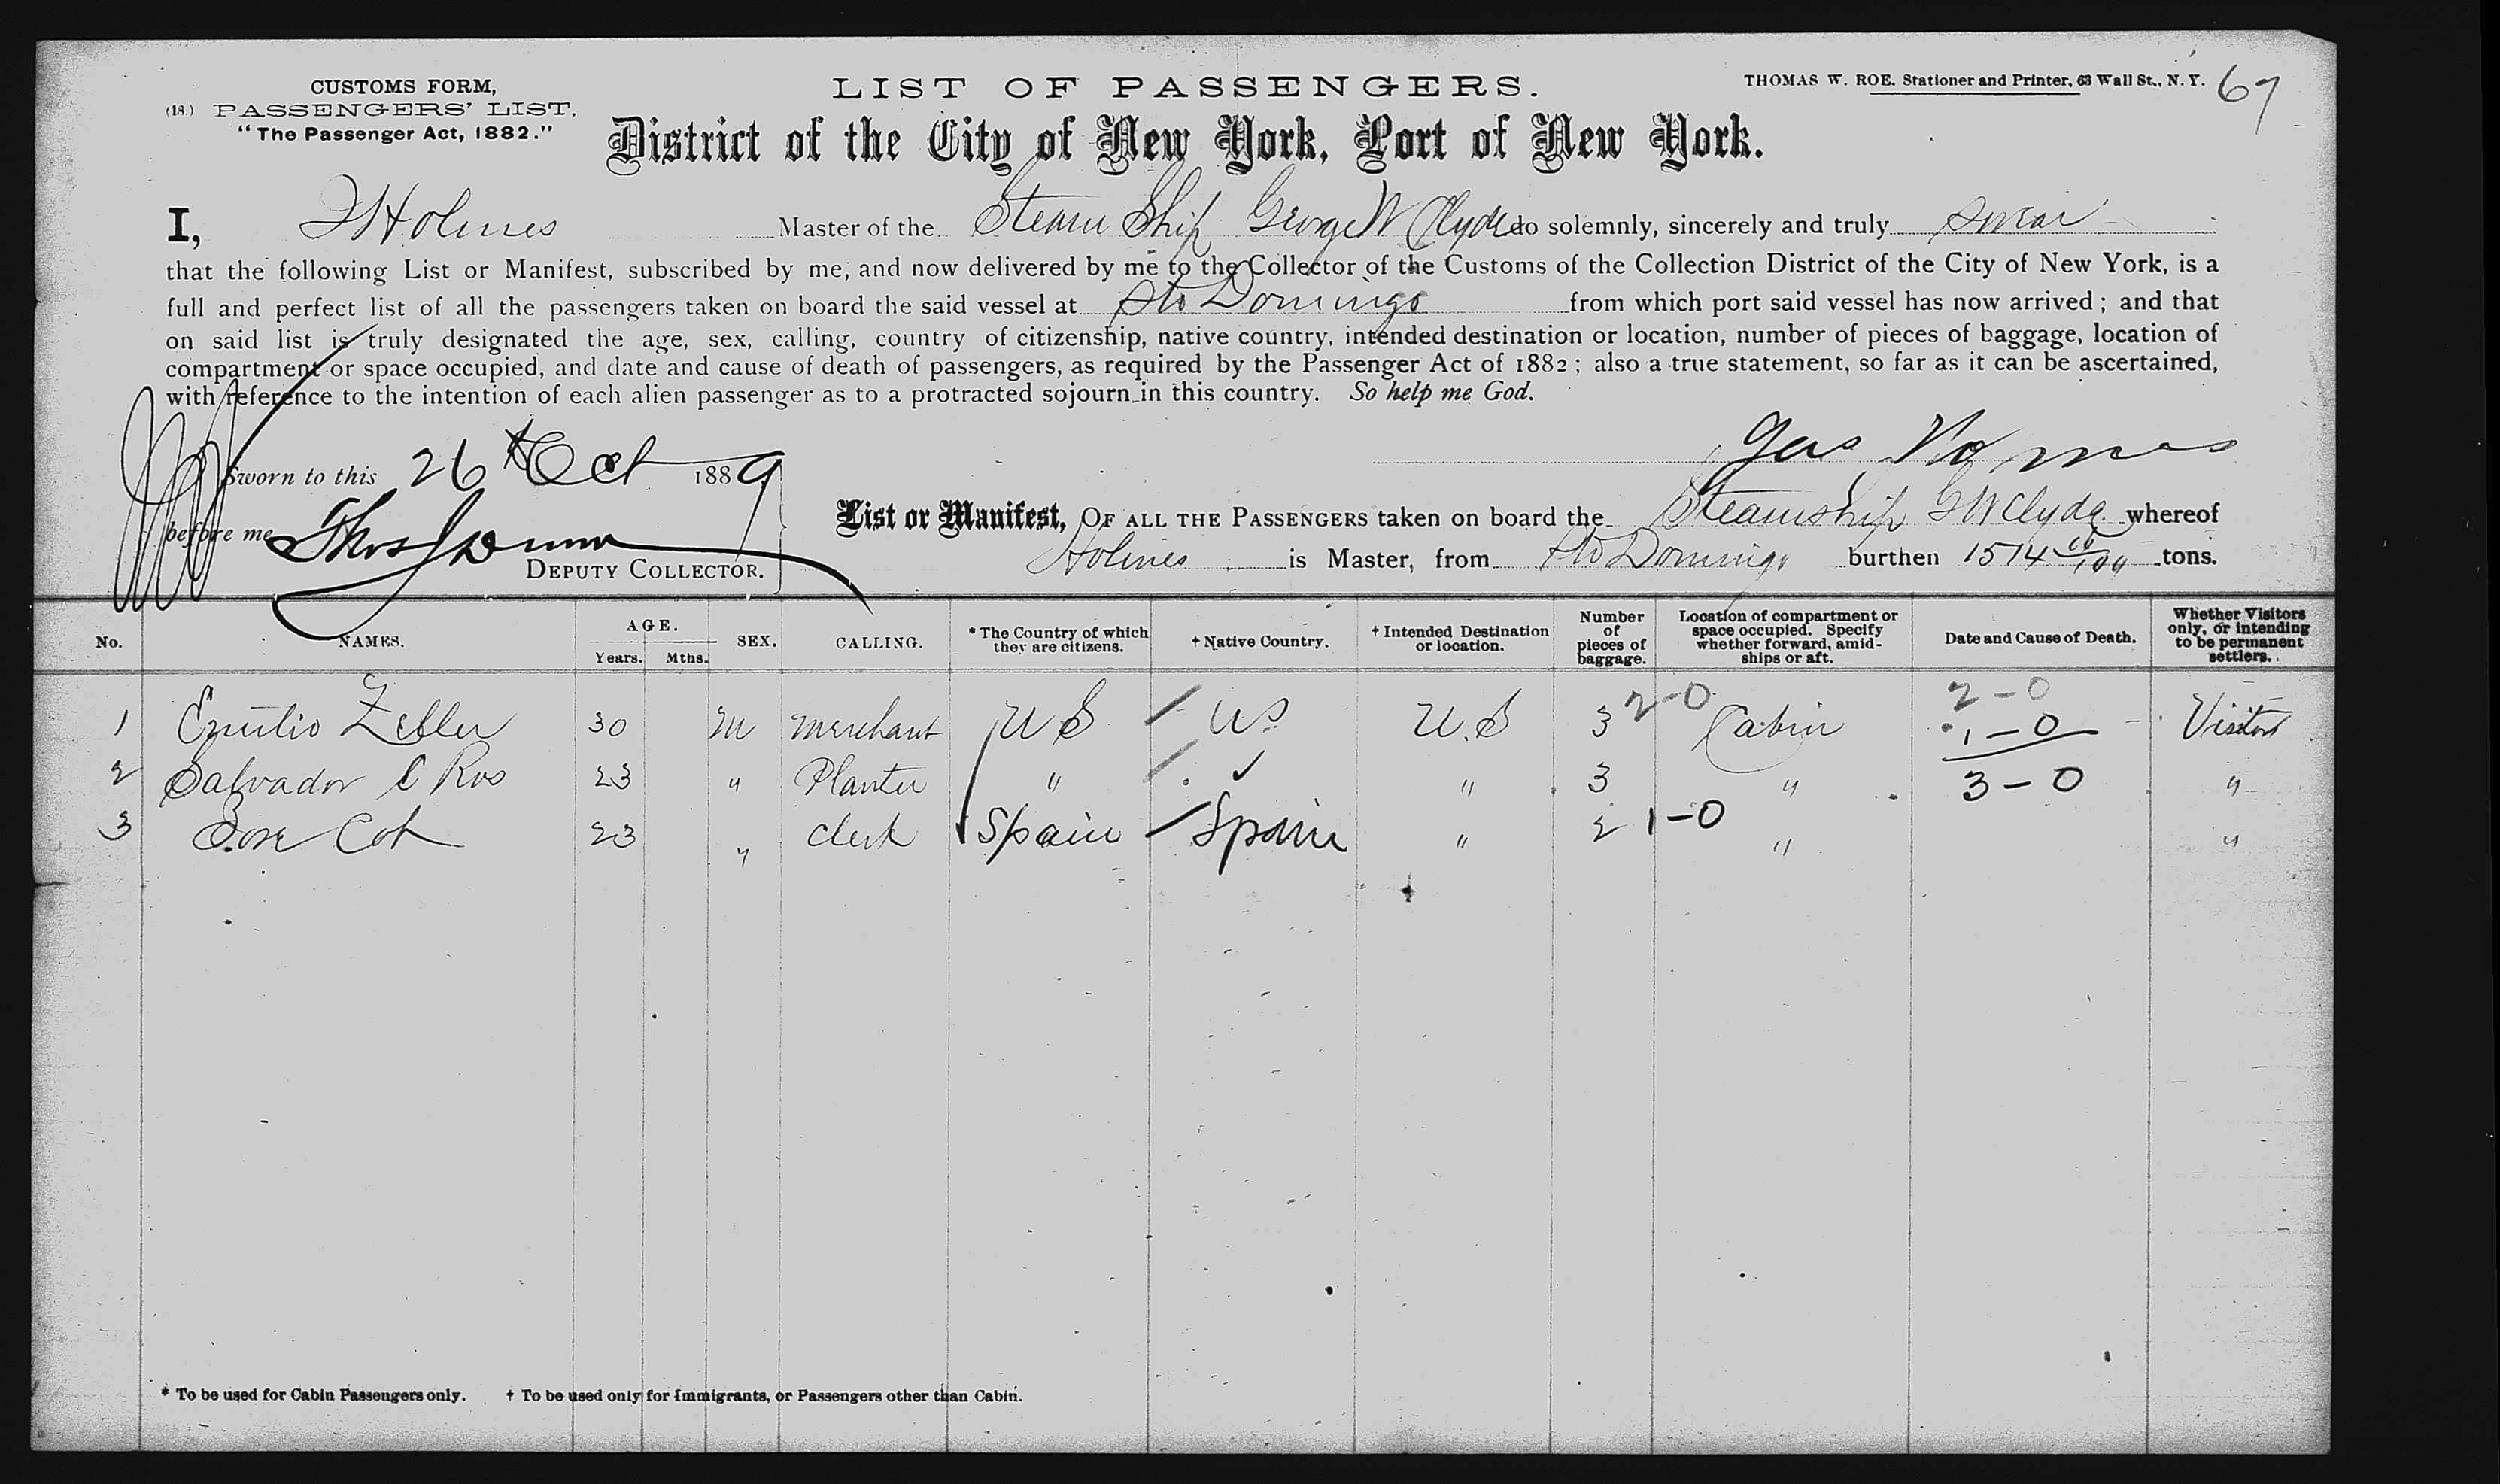 CUSTOMS FORM,
(18.) PASSENGERS' LIST,
"The Passenger Act, 1882."
LIST OF PASSENGERS.
THOMAS W. ROE. Stationer and Printer, 63 Wall St., N. Y.
67
District of the City of New York, Port of New York.
I, J Holmes Master of the Steam Ship George W Clyde do solemnly, sincerely and truly swear
that the following List or Manifest, subscribed by me, and now delivered by me to the Collector of the Customs of the Collection District of the City of New York, is a
full and perfect list of all the passengers taken on board the said vessel at Sto Domingo from which port said vessel has now arrived; and that
on said list is truly designated the age, sex, calling, country of citizenship, native country, intended destination or location, number of pieces of baggage, location of
compartment or space occupied, and date and cause of death of passengers, as required by the Passenger Act of 1882; also a true statement, so far as it can be ascertained,
with reference to the intention of each alien passenger as to a protracted sojourn in this country. So help me God.
Jas Holmes
Sworn to this 26th Oct 1889
before me Thos J Dunn
DEPUTY COLLECTOR.
List or Manifest, OF ALL THE PASSENGERS taken on board the Steamship G W Clyde whereof
Holmes is Master, from Sto Domingo burthen 1514 /100 tons.
No. NAMES. AGE. Years. Mths. SEX. CALLING. * The Country of which they are citizens. † Native Country. † Intended Destination or location. Number of pieces of baggage. Location of compartment or space occupied. Specify whether forward, amidships or aft. Date and Cause of Death. Whether Visitors only, or intending to be permanent settlers.
1 Emilio Zeller 30 M Merchant U S U S U.S 3 2-0 Cabin 2-0 1-0 Visitors
2 Salvador C Ros 23 " Planter " ✓ " 3 " 3-0 "
3 Jose Cot 23 " Clerk Spain Spain " 2 1-0 " "
* To be used for Cabin Passengers only. † To be used only for Immigrants, or Passengers other than Cabin.